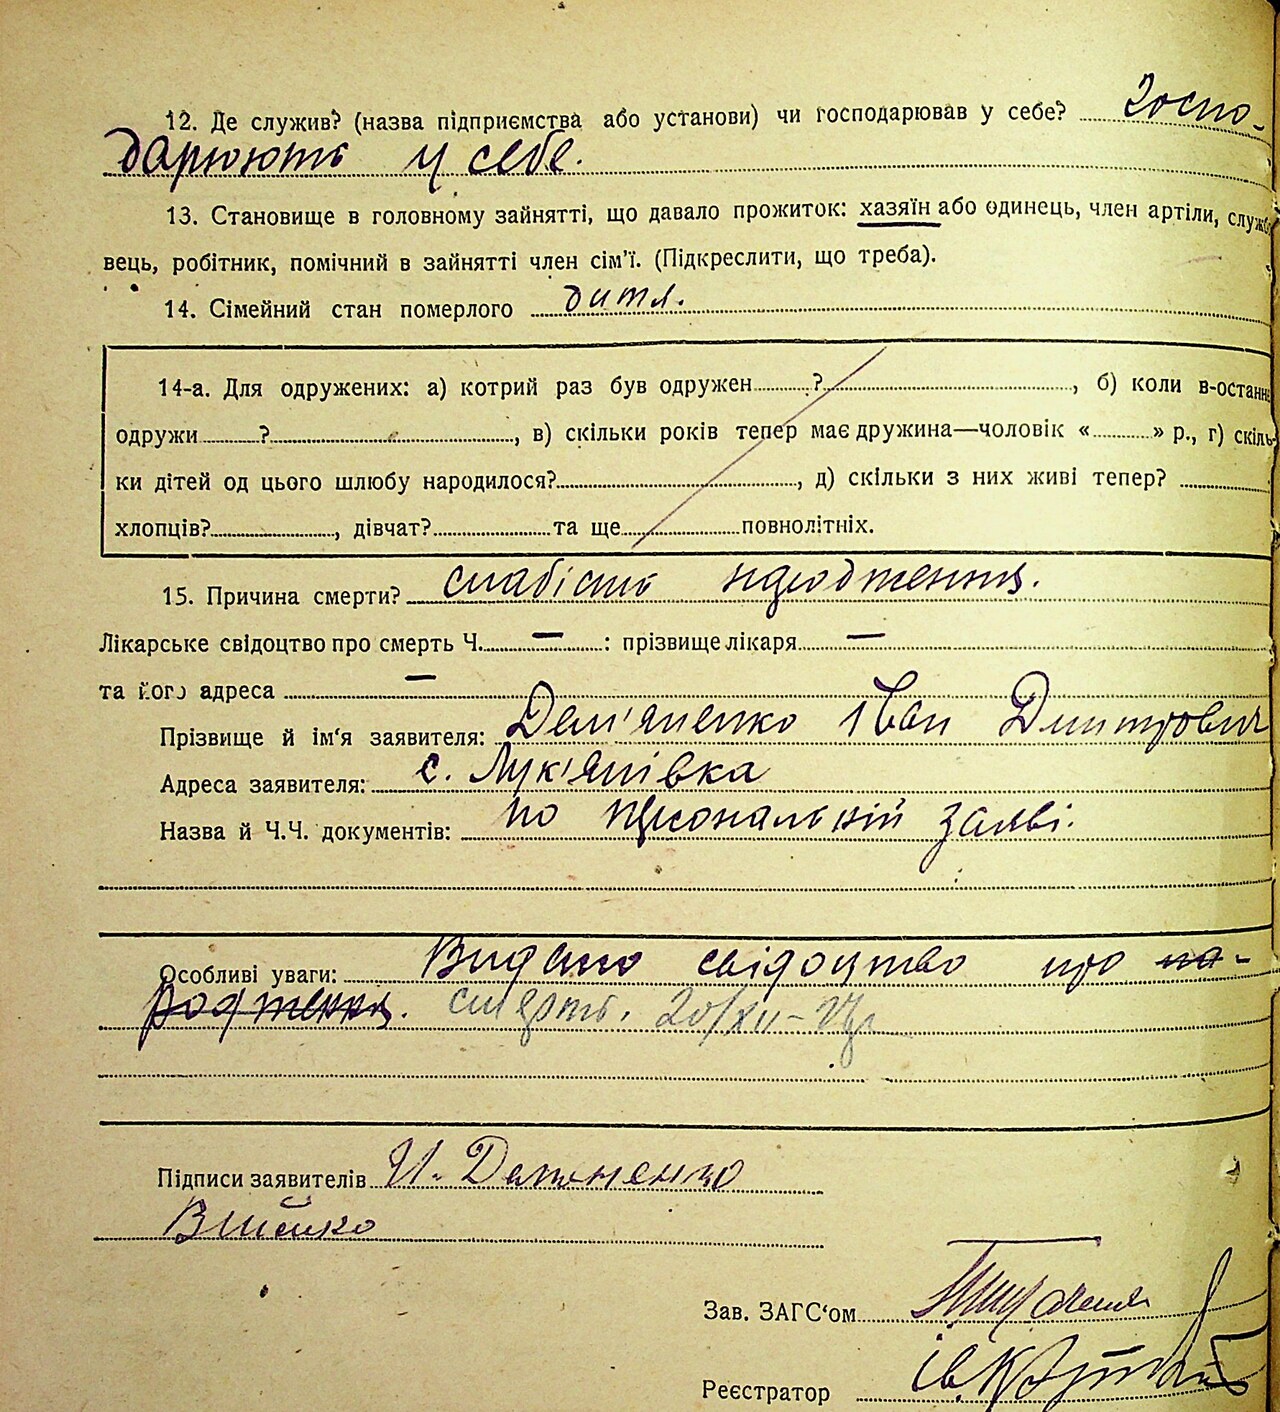 12. Де служив? (назва підприємства або установи) чи господарював у себе? Госпо-
дарюють у себе.
13. Становище в головному зайнятті, що давало прожиток: хазяїн або одинець, член артіли, службо
вець, робітник, помічний в зайнятті член сім'ї. (Підкреслити, що треба).
14. Сімейний стан померлого дитя.
14-а. Для одружених: а) котрий раз був одружен ?, б) коли в-останнє
одружи ?, в) скільки років тепер має дружина—чоловік « » р., г) скіль-
ки дітей од цього шлюбу народилося?, д) скільки з них живі тепер?
хлопців?, дівчат? та ще повнолітніх.
15. Причина смерти? слабість народження.
Лікарське свідоцтво про смерть Ч. — : прізвище лікаря —
та його адреса —
Прізвище й ім'я заявителя: Дем'яненко Іван Дмитрович
Адреса заявителя: с. Лук'янівка
Назва й Ч.Ч. документів: по персональній заяві.
Особливі уваги: Видано свідоцтво про на-
родження. смерть. 20/XII-
Підписи заявителів И. Демяненко
Зав. ЗАГС'ом
Реєстратор Ів.